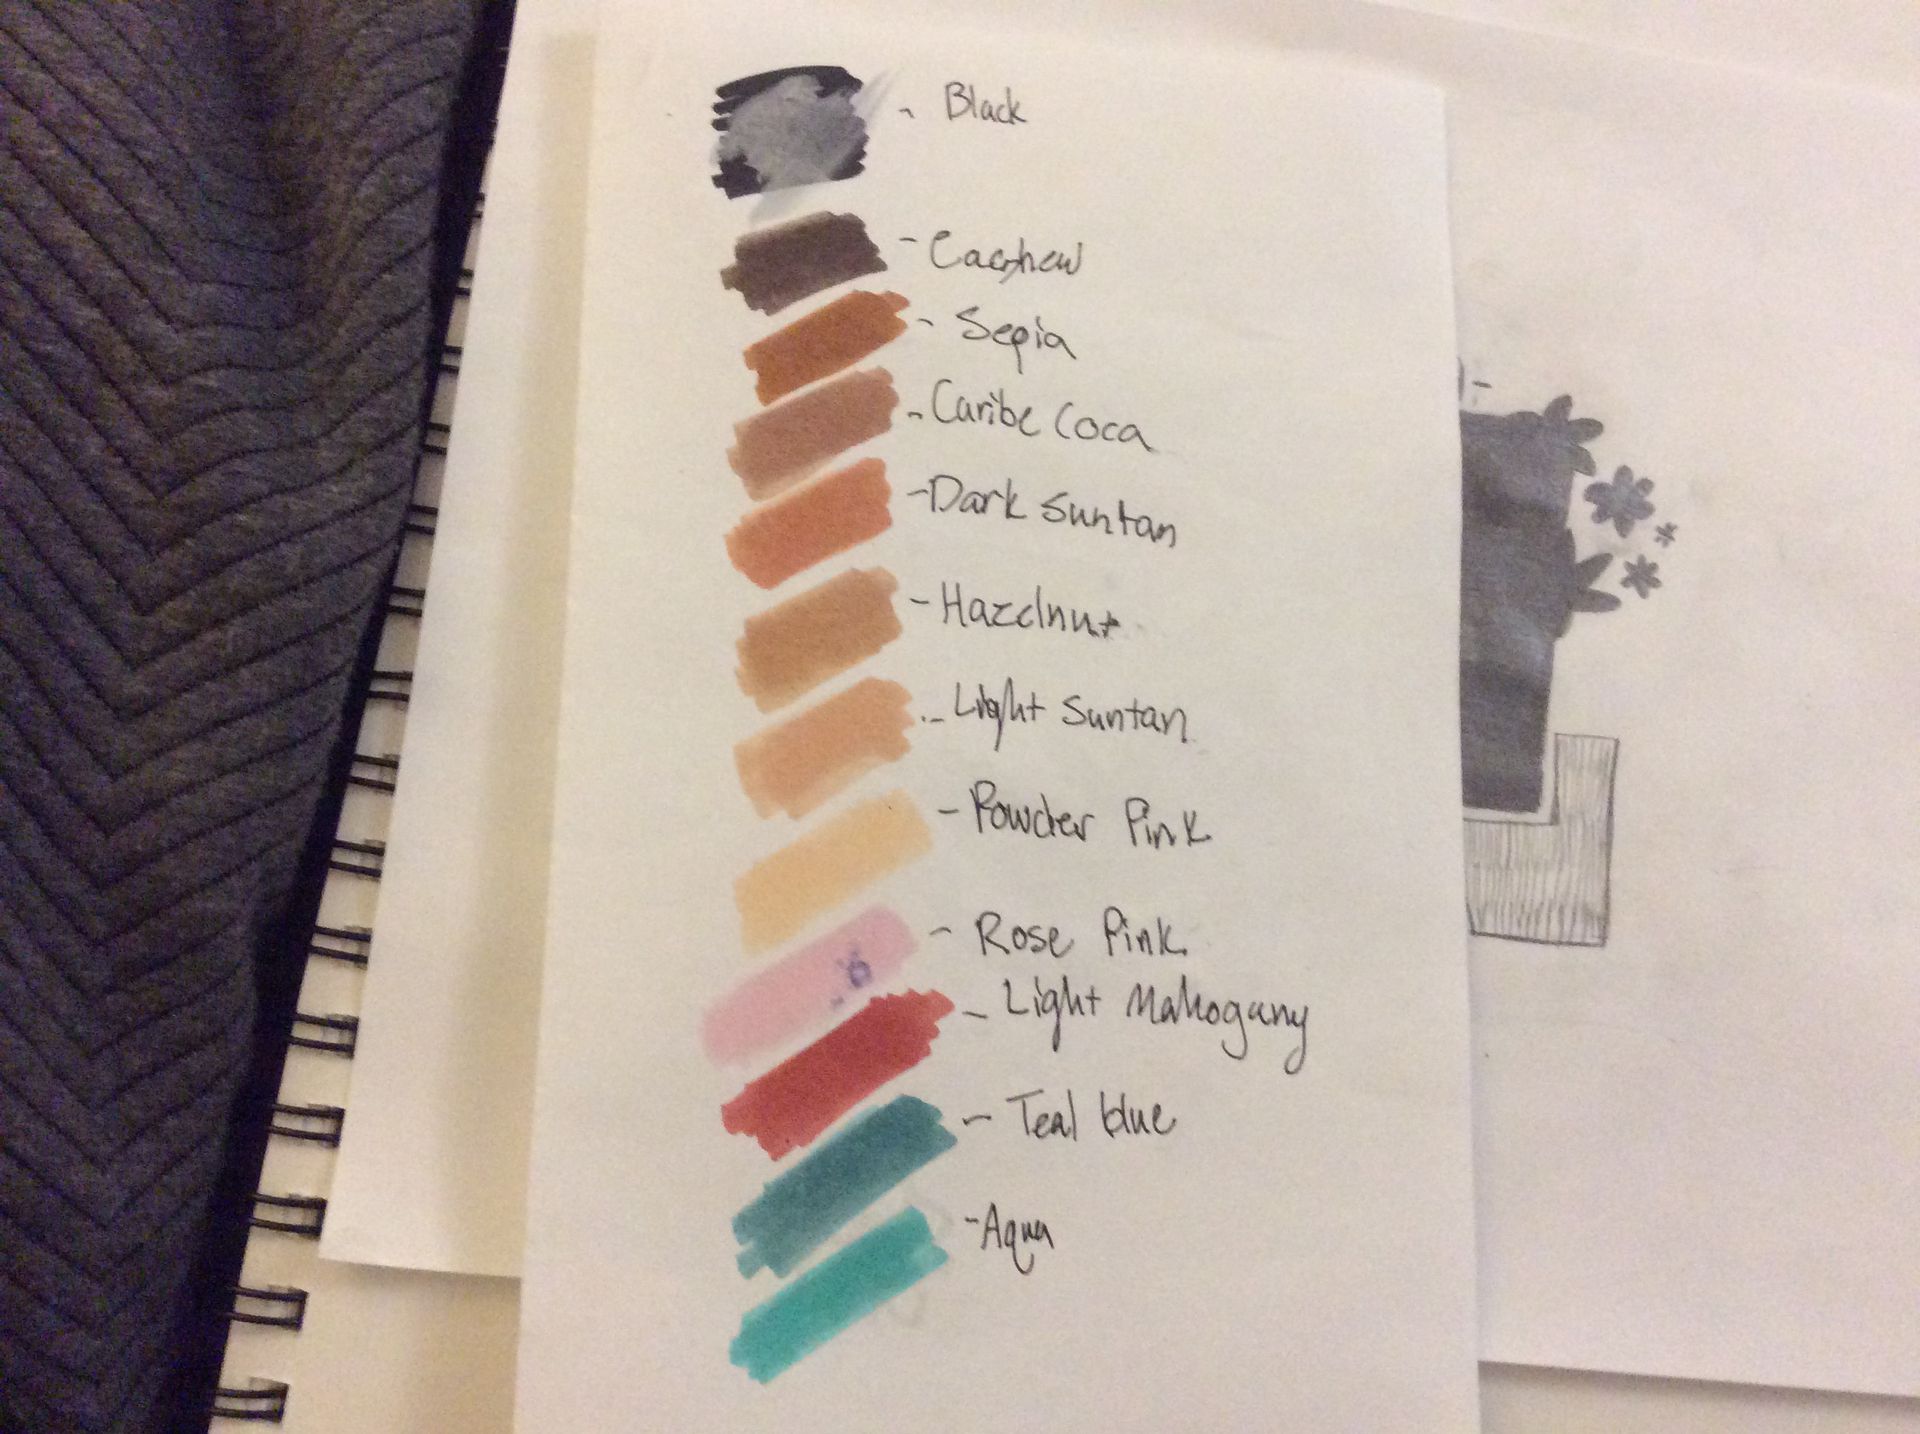 - Black
- Cashew
- Sepia
- Caribe Coca
- Dark Suntan
- Hazelnut
- Light Suntan
- Powder Pink
- Rose Pink
- Light Mahogany
- Teal blue
- Aqua